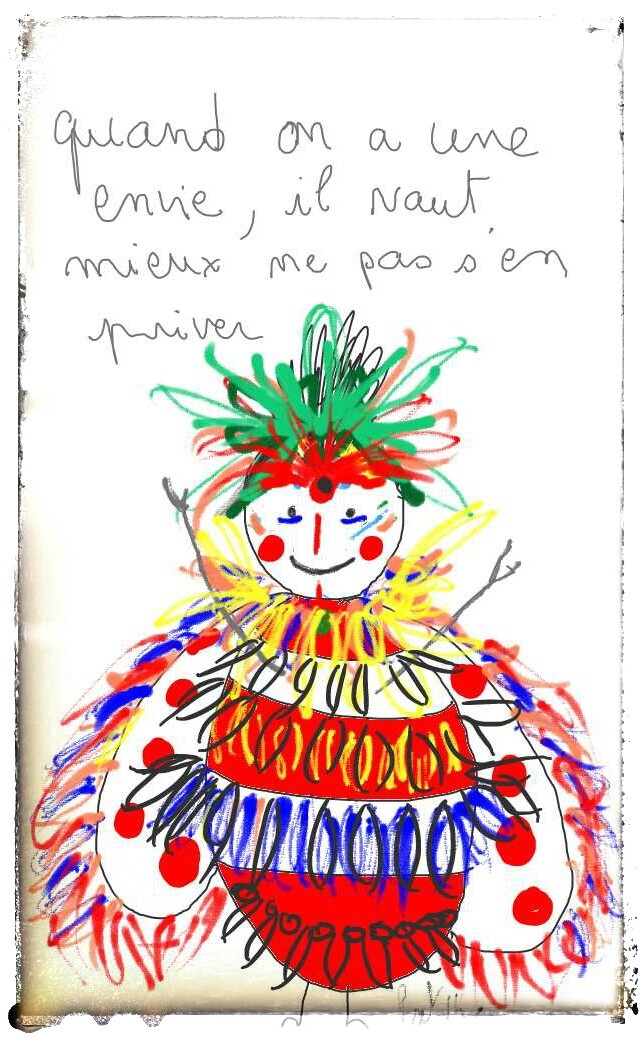 quand on a une
envie, il vaut
mieux ne pas s'en
priver